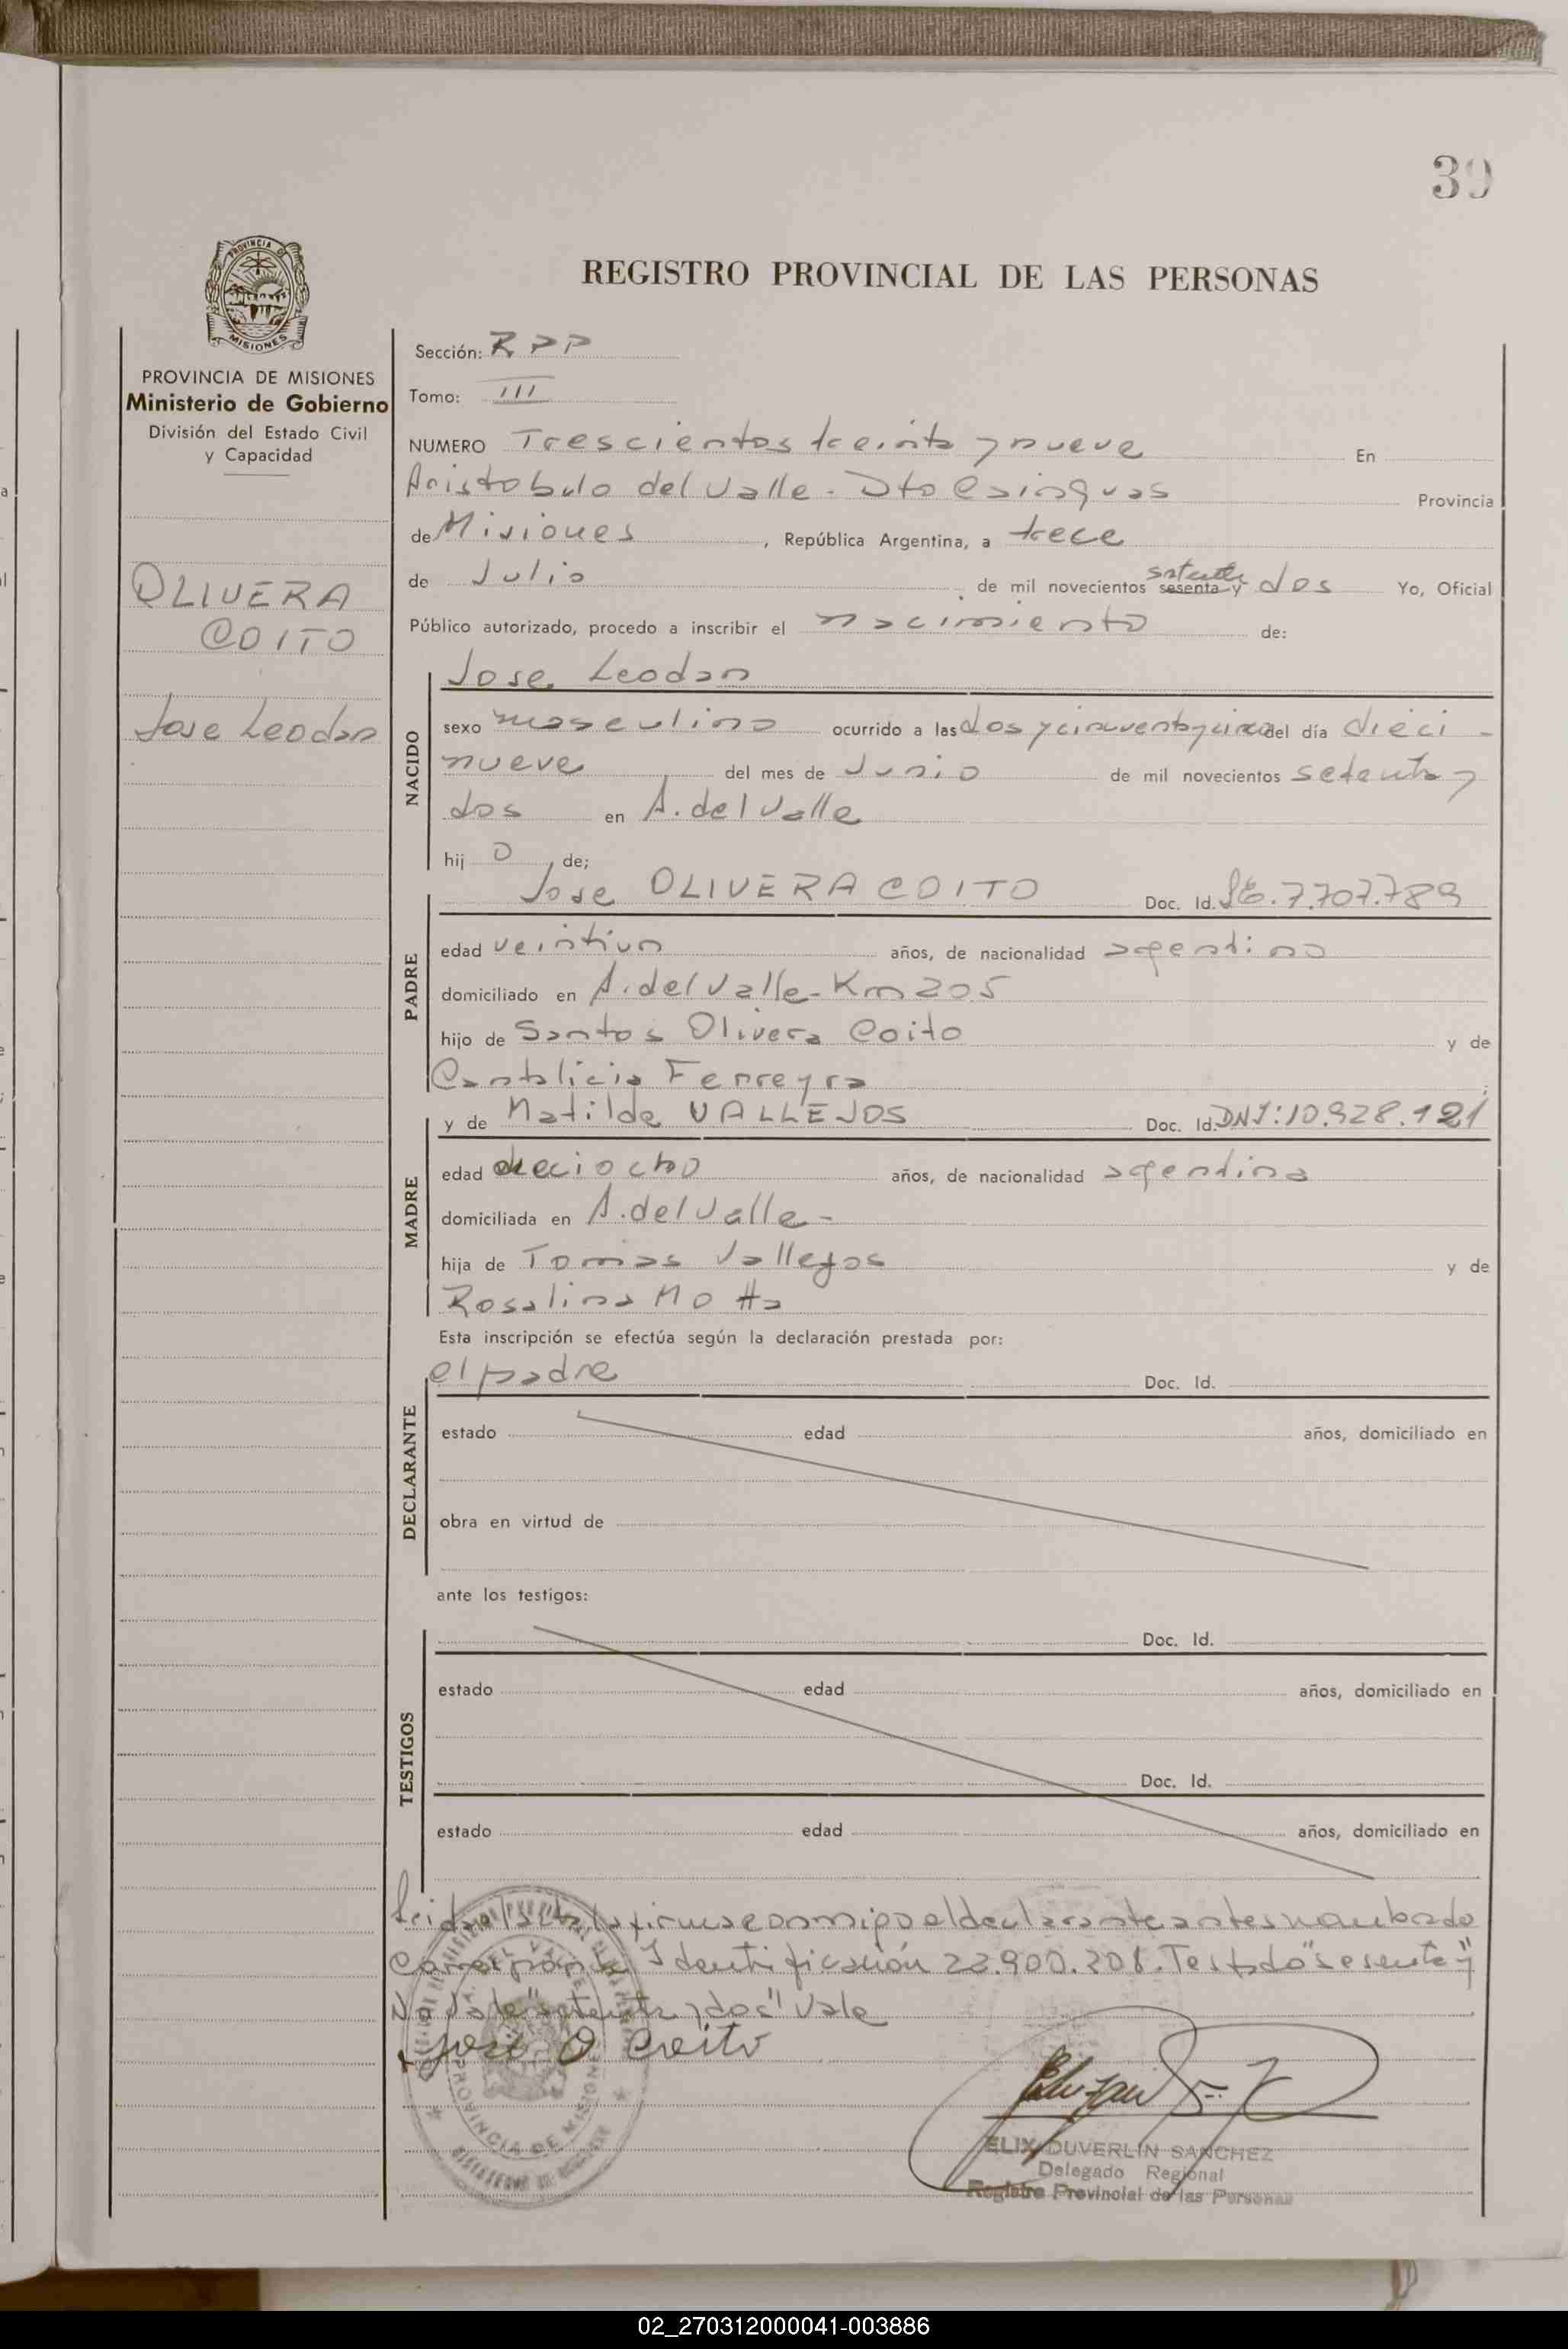 39
REGISTRO PROVINCIAL DE LAS PERSONAS
PROVINCIA DE MISIONES
Ministerio de Gobierno
División del Estado Civil
y Capacidad
OLIVERA
COITO
Jose Leodan
Sección: RPP
Tomo: III
NUMERO Trescientos treinta y nueve En
Aristobulo del Valle - Dto Cainguas Provincia
de Misiones, República Argentina, a trece
de Julio de mil novecientos sesenta y setenta dos Yo, Oficial
Público autorizado, procedo a inscribir el nacimiento de:
NACIDO
Jose Leodan
sexo masculino ocurrido a las dos y cincuenta y cinco del día dieci -
nueve del mes de Junio de mil novecientos setenta y
dos en A. del Valle
hijo de;
PADRE
Jose OLIVERA COITO Doc. Id. 7.707.789
edad veintiun años, de nacionalidad argentino
domiciliado en A. del Valle - Km 205
hijo de Santos Olivera Coito y de
Cantalicia Ferreyra
MADRE
y de Matilde VALLEJOS Doc. Id. DNI: 10.928.121
edad dieciocho años, de nacionalidad argentina
domiciliada en A. del Valle -
hija de Tomas Vallejos y de
Rosalina Motta
Esta inscripción se efectúa según la declaración prestada por:
DECLARANTE
el padre Doc. Id.
estado edad años, domiciliado en
obra en virtud de
ante los testigos:
TESTIGOS
Doc. Id.
estado edad años, domiciliado en
Doc. Id.
estado edad años, domiciliado en
Leida el acta la firma conmigo el declarante antes nombrado
Identificación 22.900.208. Testado "sesenta y"
"setenta y dos" Vale
José O Coito
PROVINCIA DE MISIONES
ELIX DUVERLIN SANCHEZ
Delegado Regional
Registro Provincial de las Personas
02_270312000041-003886